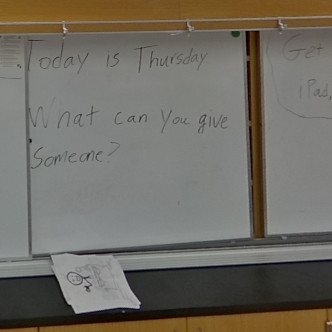 Today is Thursday
What can you give
Someone?
Get
iPad,